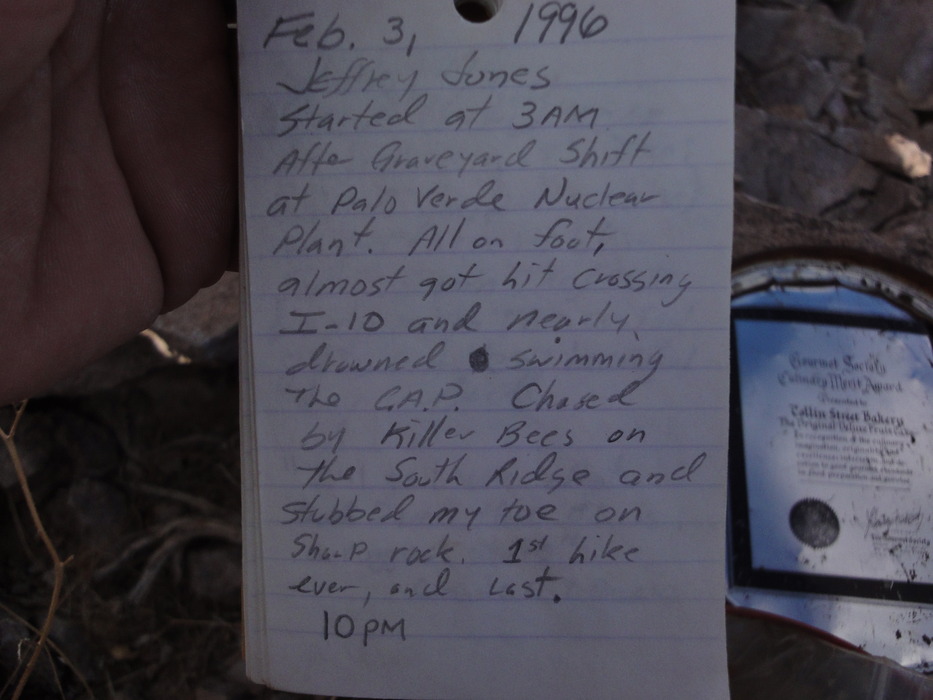 Feb. 3, 1996
Jeffrey Jones
Started at 3AM
After Graveyard Shift
at Palo Verde Nuclear
Plant. All on foot,
almost got hit crossing
I-10 and nearly
drowned swimming
The C.A.P. Chased
by Killer Bees on
the South Ridge and
stubbed my toe on
Sharp rock. 1st hike
ever, and Last.
10 PM
Gourmet Society
Culinary Merit Award
Presented to
Collin Street Bakery
The Original DeLuxe Fruit Cake
In recognition of the culinary
imagination, originality and